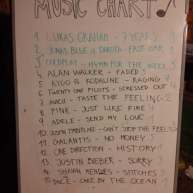 MUSIC CHART
1 LUKAS GRAHAM - 7 YEARS
2 JONAS BLUE ft DAKOTA - FAST CAR
3 COLDPLAY - HYMN FOR THE WEEK
4 ALAN WALKER - FADED
5 KYGO ft KODALINE - RAGING
6 TWENTY ONE PILOTS - STRESSED OUT
7 - TASTE THE FEELING
8 P!NK - JUST LIKE FIRE
9 ADELE - SEND MY LOVE
10 JUSTIN TIMBERLAKE - CAN'T STOP THE FEELING
11 GALANTIS - NO MONEY
12 ONE DIRECTION - HISTORY
13 JUSTIN BIEBER - SORRY
14 SHAWN MENDES - STITCHES
15 DNCE - CAKE BY THE OCEAN